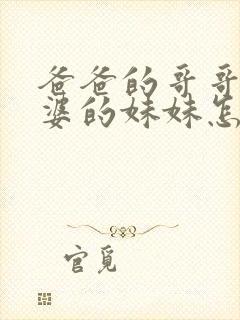 爸爸的哥哥
婆的妹妹怎
官觅